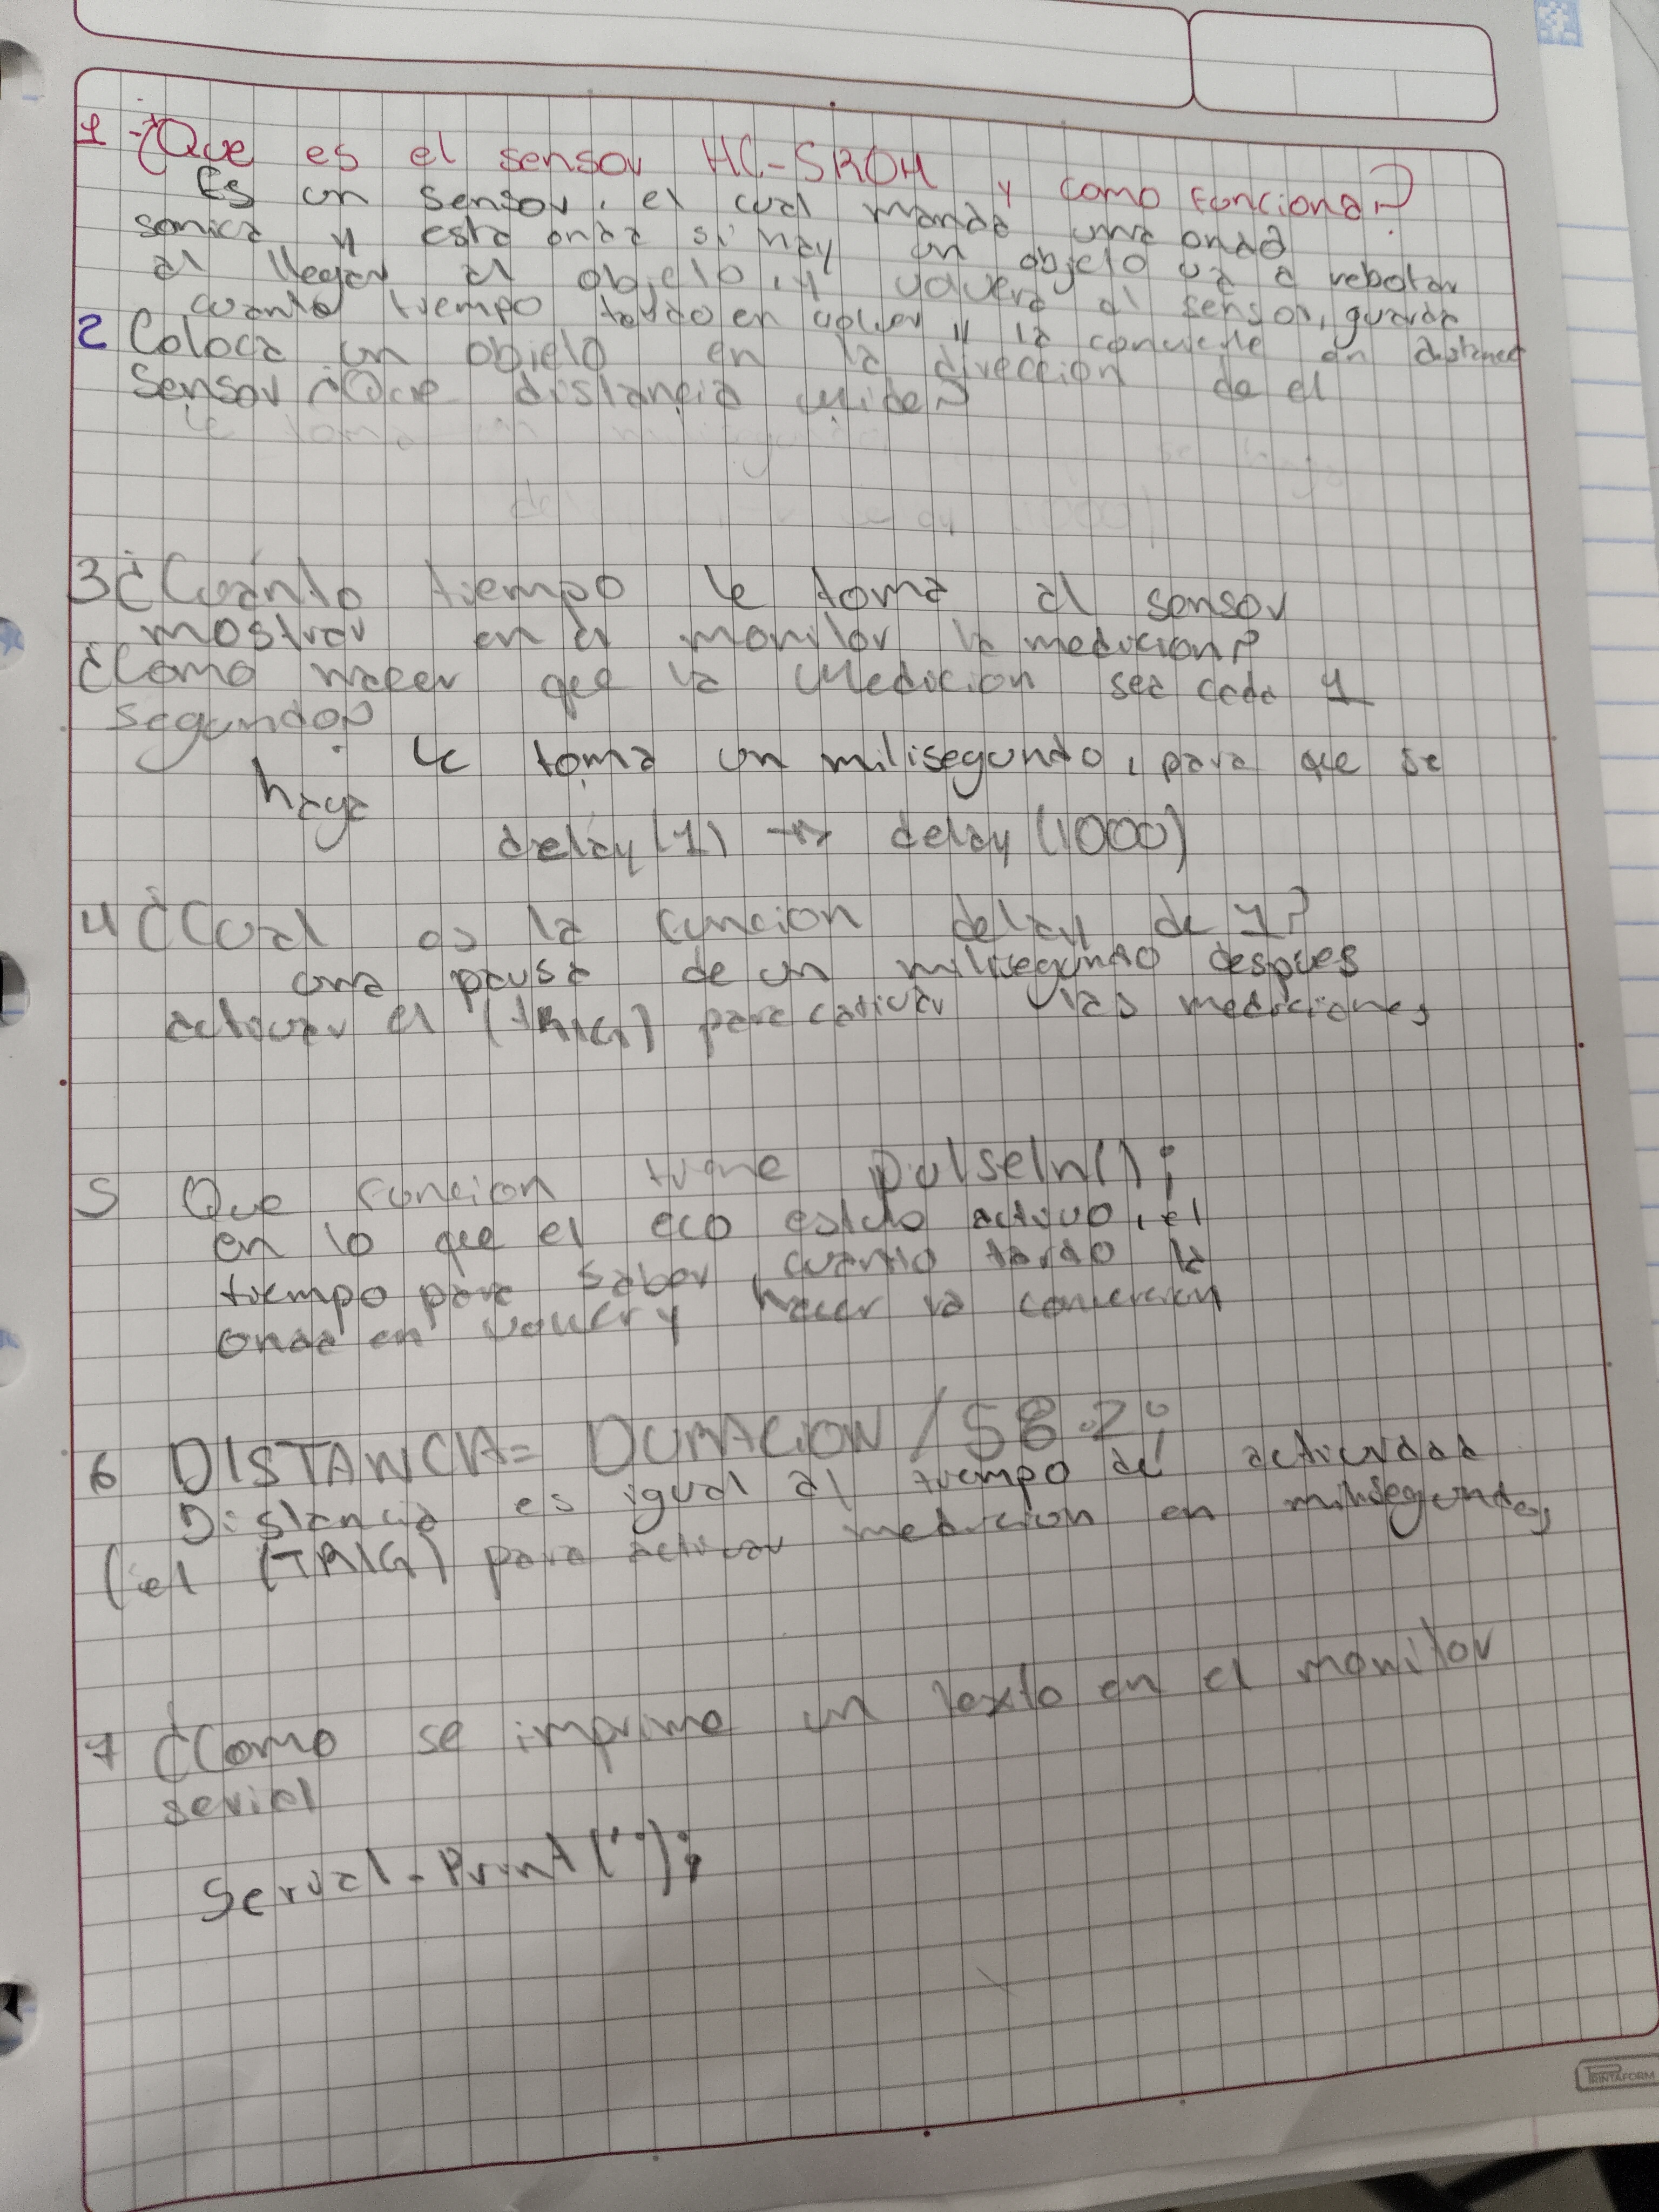 1 -¿Que es el sensor HC-SR04 y como funciona?
Es un sensor, el cual manda una onda
sonica y esta onda si hay un objeto va a rebotar
al llegar al objeto, y volvera al sensor, guarda
cuanto tiempo tardo en volver y la convierte en distancia
2 Coloca un objeto en la direccion de el
sensor ¿Que distancia mide?
3 ¿Cuanto tiempo le toma al sensor
mostrar en el monitor la medicion?
¿Como hacer que la medicion sea cada 1
segundo?
Le toma un milisegundo, para que se
haga
delay (1) → delay (1000)
4 ¿Cual es la funcion delay de 1?
una pausa de un milisegundo despues
activar el (TRIG) para activar las mediciones
5 Que funcion tiene pulseIn();
en lo que el eco estubo activo, el
tiempo para saber, cuanto tardo la
onda en volver y hacer la conversion
6 DISTANCIA= DURACION / 58.2;
Distancia es igual al tiempo de actividad
(el (TRIG) para activar medicion en milisegundos
7 ¿Como se imprime un texto en el monitor
serial
Serial.Print(" ");
PRINTAFORM